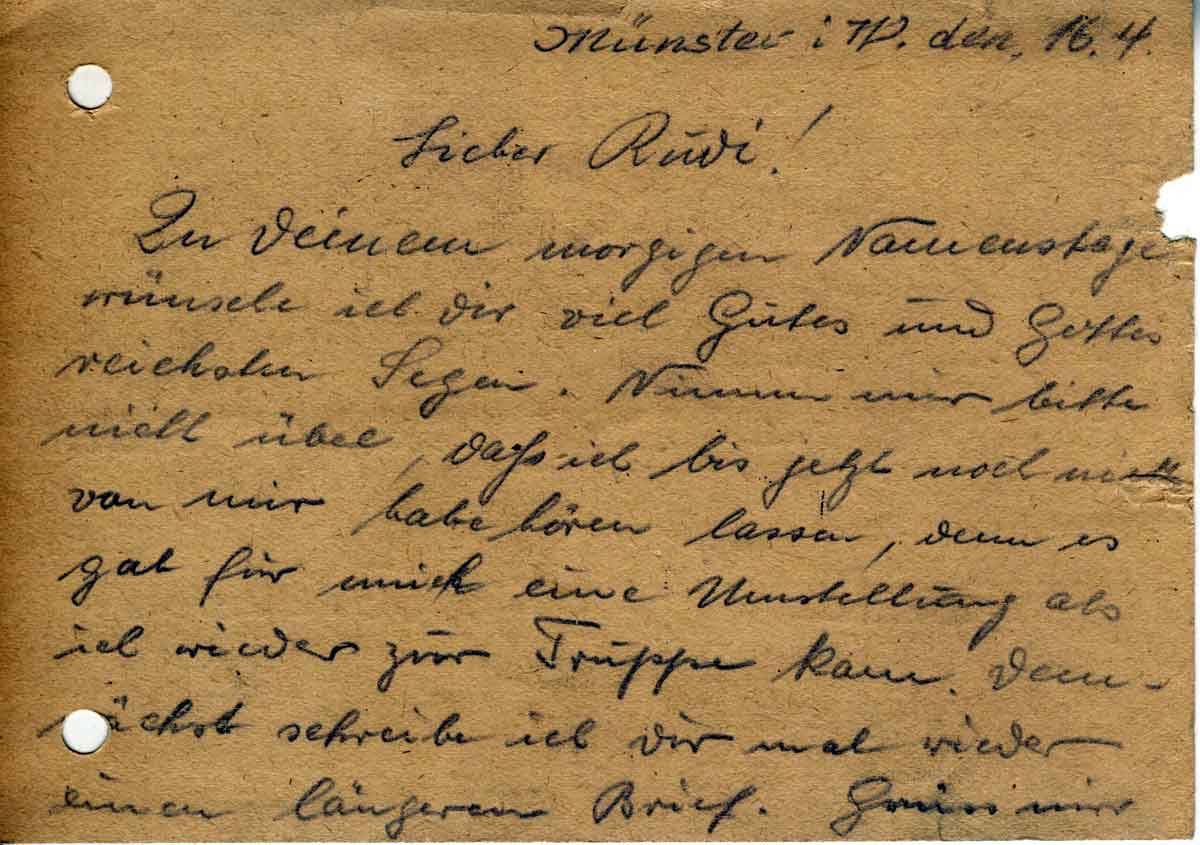 Münster i W. den, 16.4.
Lieber Rudi!
Zu deinem morgigen Namenstage
wünsche ich dir viel Gutes und Gottes
reichsten Segen. Nimm mir bitte
nicht übel, dass ich bis jetzt noch nichts
von mir habe hören lassen, denn es
gab für mich eine Umstellung als
ich wieder zur Truppe kam. Dem-
nächst schreibe ich dir mal wieder
einen längeren Brief. Grüss mir